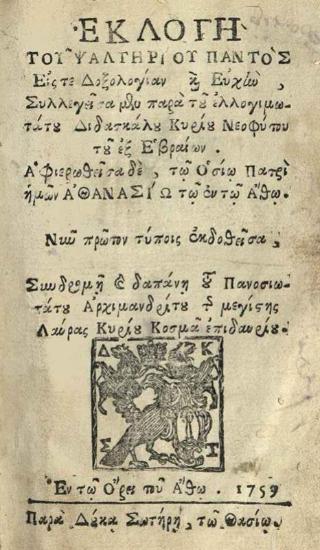 ἘΚΛΟΓῊ
ΤΟΥ͂ ΨΑΛΤΗΡΊΟΥ ΠΑΝΤῸΣ
Εἴς τε Δοξολογίαν καὶ Εὐχὼ,
Συλλεγεῖσα μὲν παρὰ τοῦ ἐλλογιμω-
τάτου Διδασκάλου Κυρίου Νεοφύτου
τοῦ ἐξ Ἑβραίων.
Ἀφιερωθεῖσα δὲ, τῷ Ὁσίῳ Πατρὶ
ἡμῶν ἈΘΑΝΑΣΊΩ τῷ ἐν τῷ Ἄθῳ.
Νῦν πρῶτον τύποις ἐκδοθεῖσα,
Συνδρομῇ καὶ δαπάνῃ τοῦ Πανοσιω-
τάτου Ἀρχιμανδρίτου τῆς μεγίστης
Λαύρας Κυρίου Κοσμᾶ ἐπιδαυρίου.
Δ Κ
Σ
Ἐν τῷ Ὄρει τοῦ Ἄθω. 1759
Παρὰ Δούκα Σωτήρη, τῷ Θασίῳ.